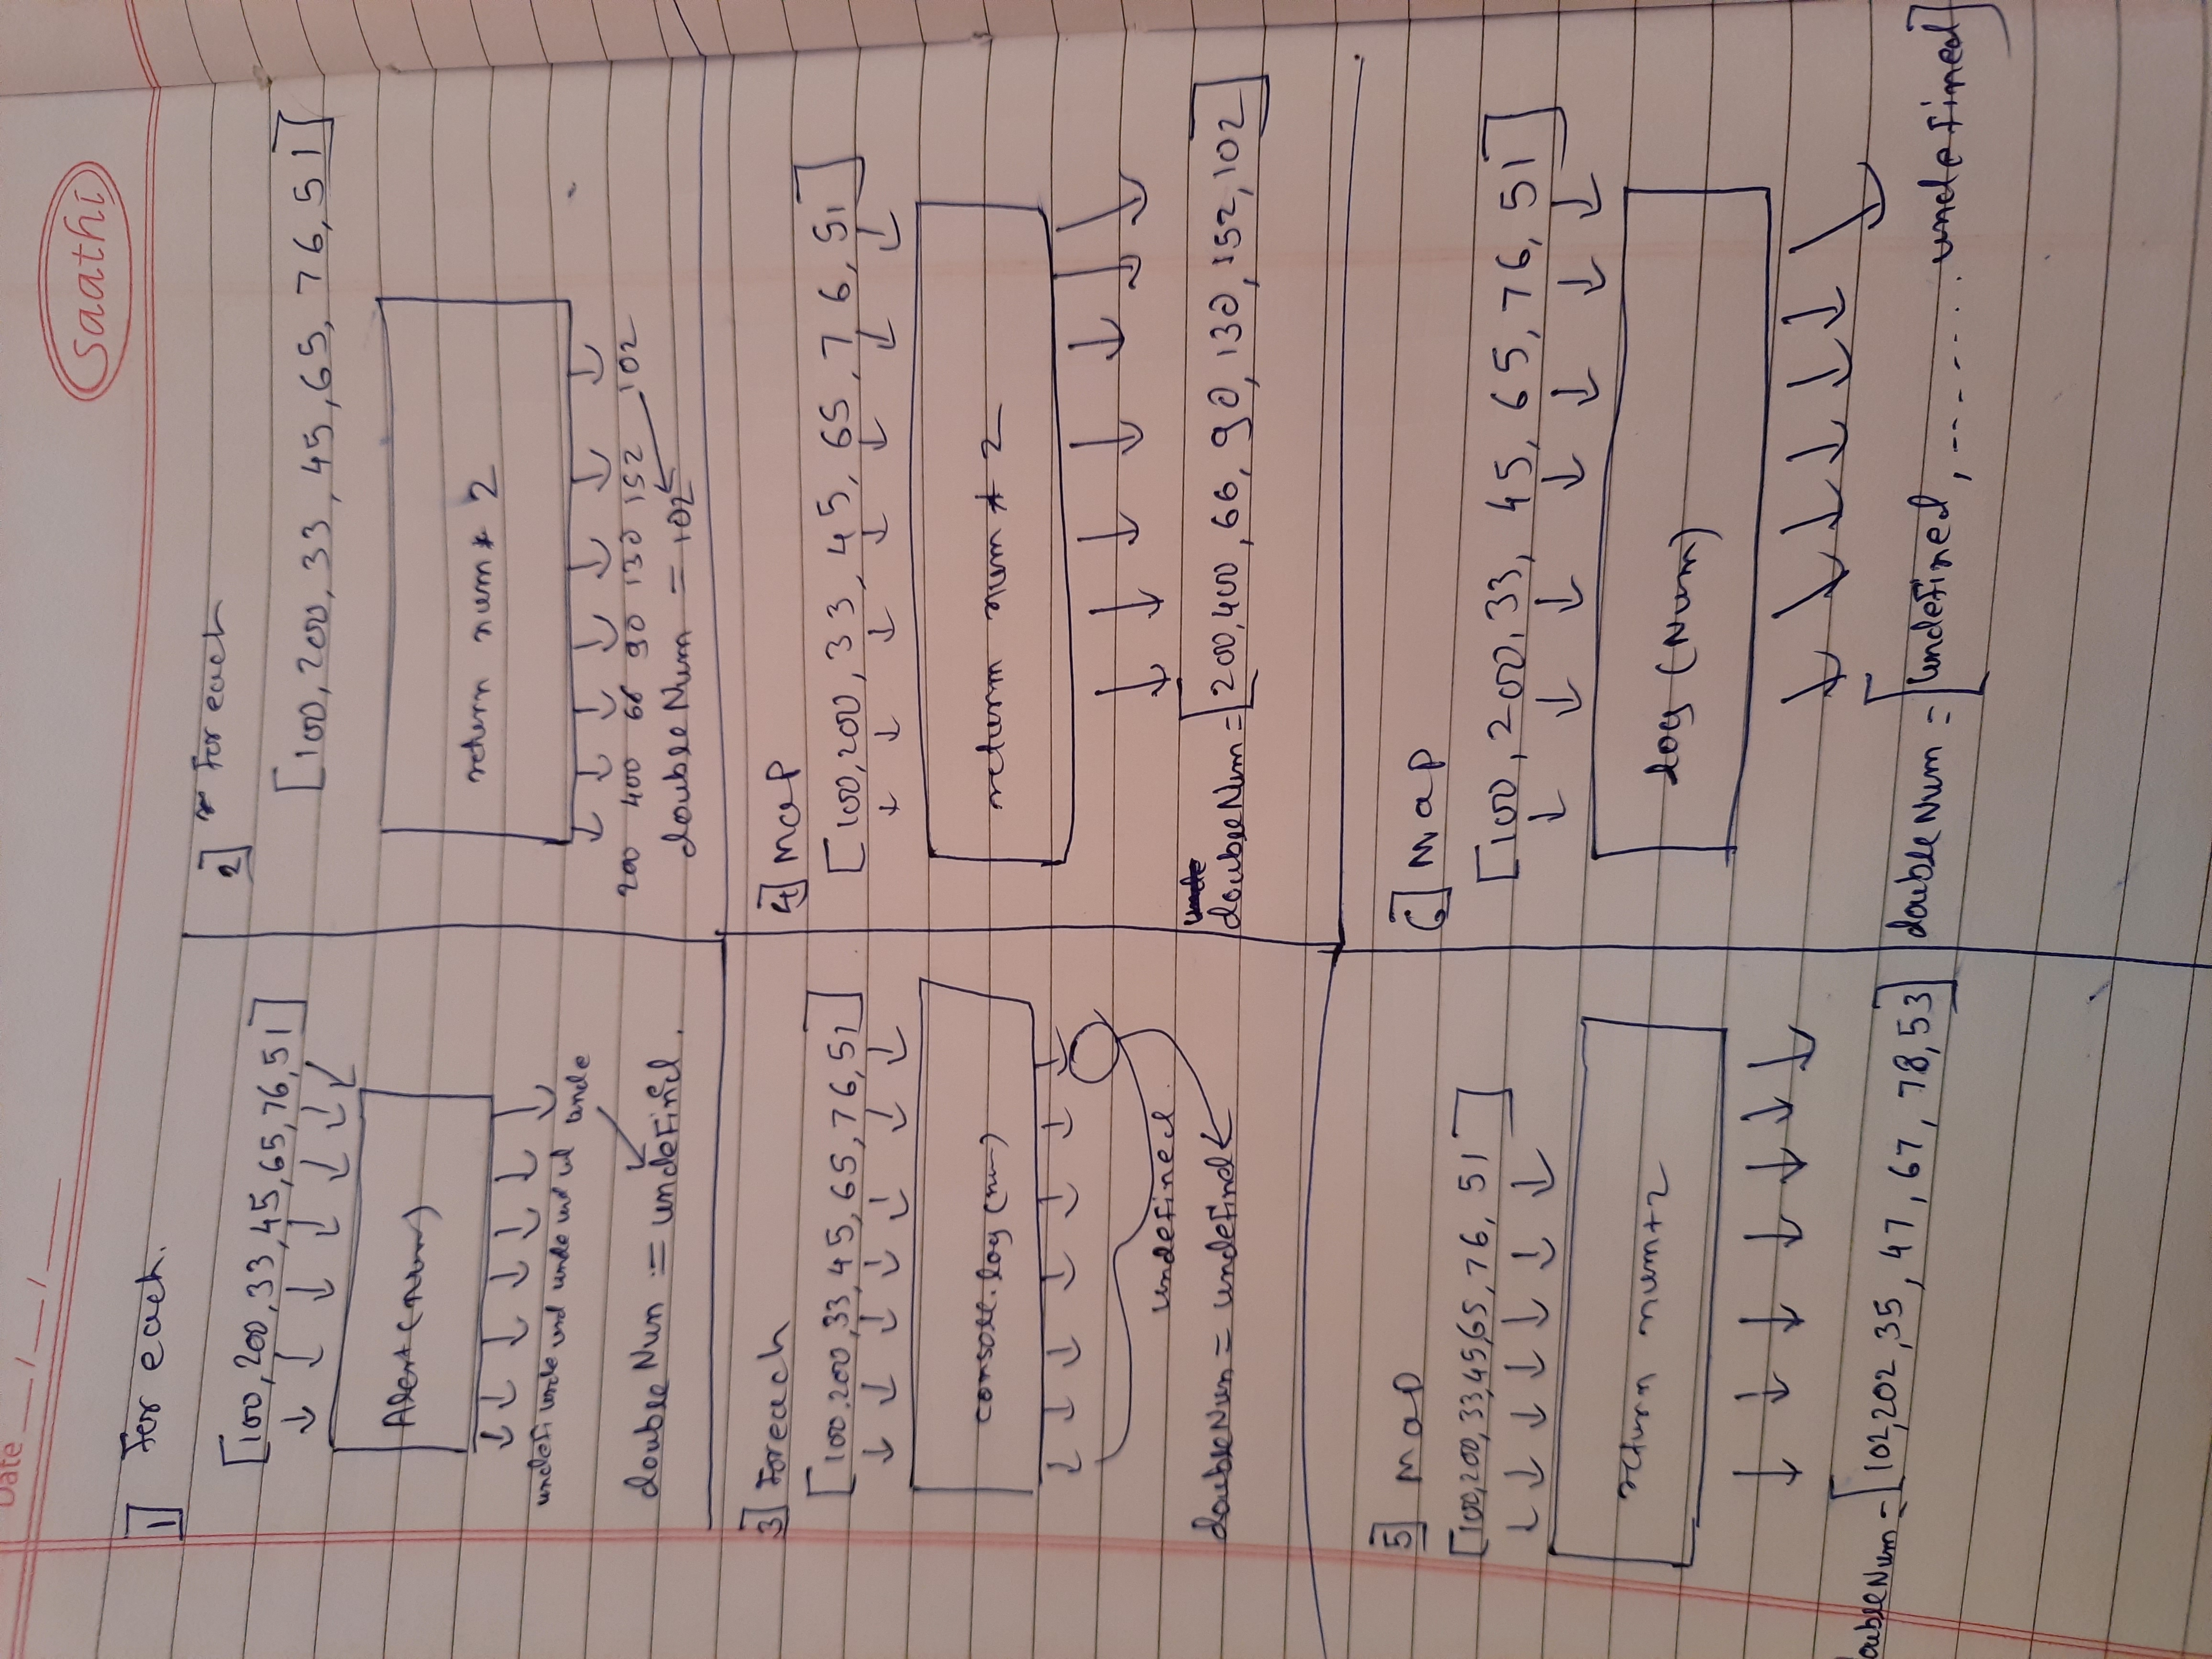 Date __/__/____
saathi
1] For each.
[100, 200, 33, 45, 65, 76, 51]
Alert (num)
undefi unde und unde und ud unde
double Nun := undefined.
2] For each
[100, 200, 33, 45, 65, 76, 51]
return num * 2
200 400 66 90 130 152 102
double Num = 102
3] Foreach
[100, 200, 33, 45, 65, 76, 51]
console.log (num)
undefined.
doubleNun = undefind
4] map
[100, 200, 33, 45, 65, 76, 51]
return num * 2
unde
double Num = [200, 400, 66, 90, 130, 152, 102]
5] map
[100, 200, 33, 45, 65, 76, 51]
return num+2
oubleNum = [102, 202, 35, 47, 67, 78, 53]
6] map
[100, 200, 33, 45, 65, 76, 51]
log (Num)
double Num = [undefined, ........ undefined]